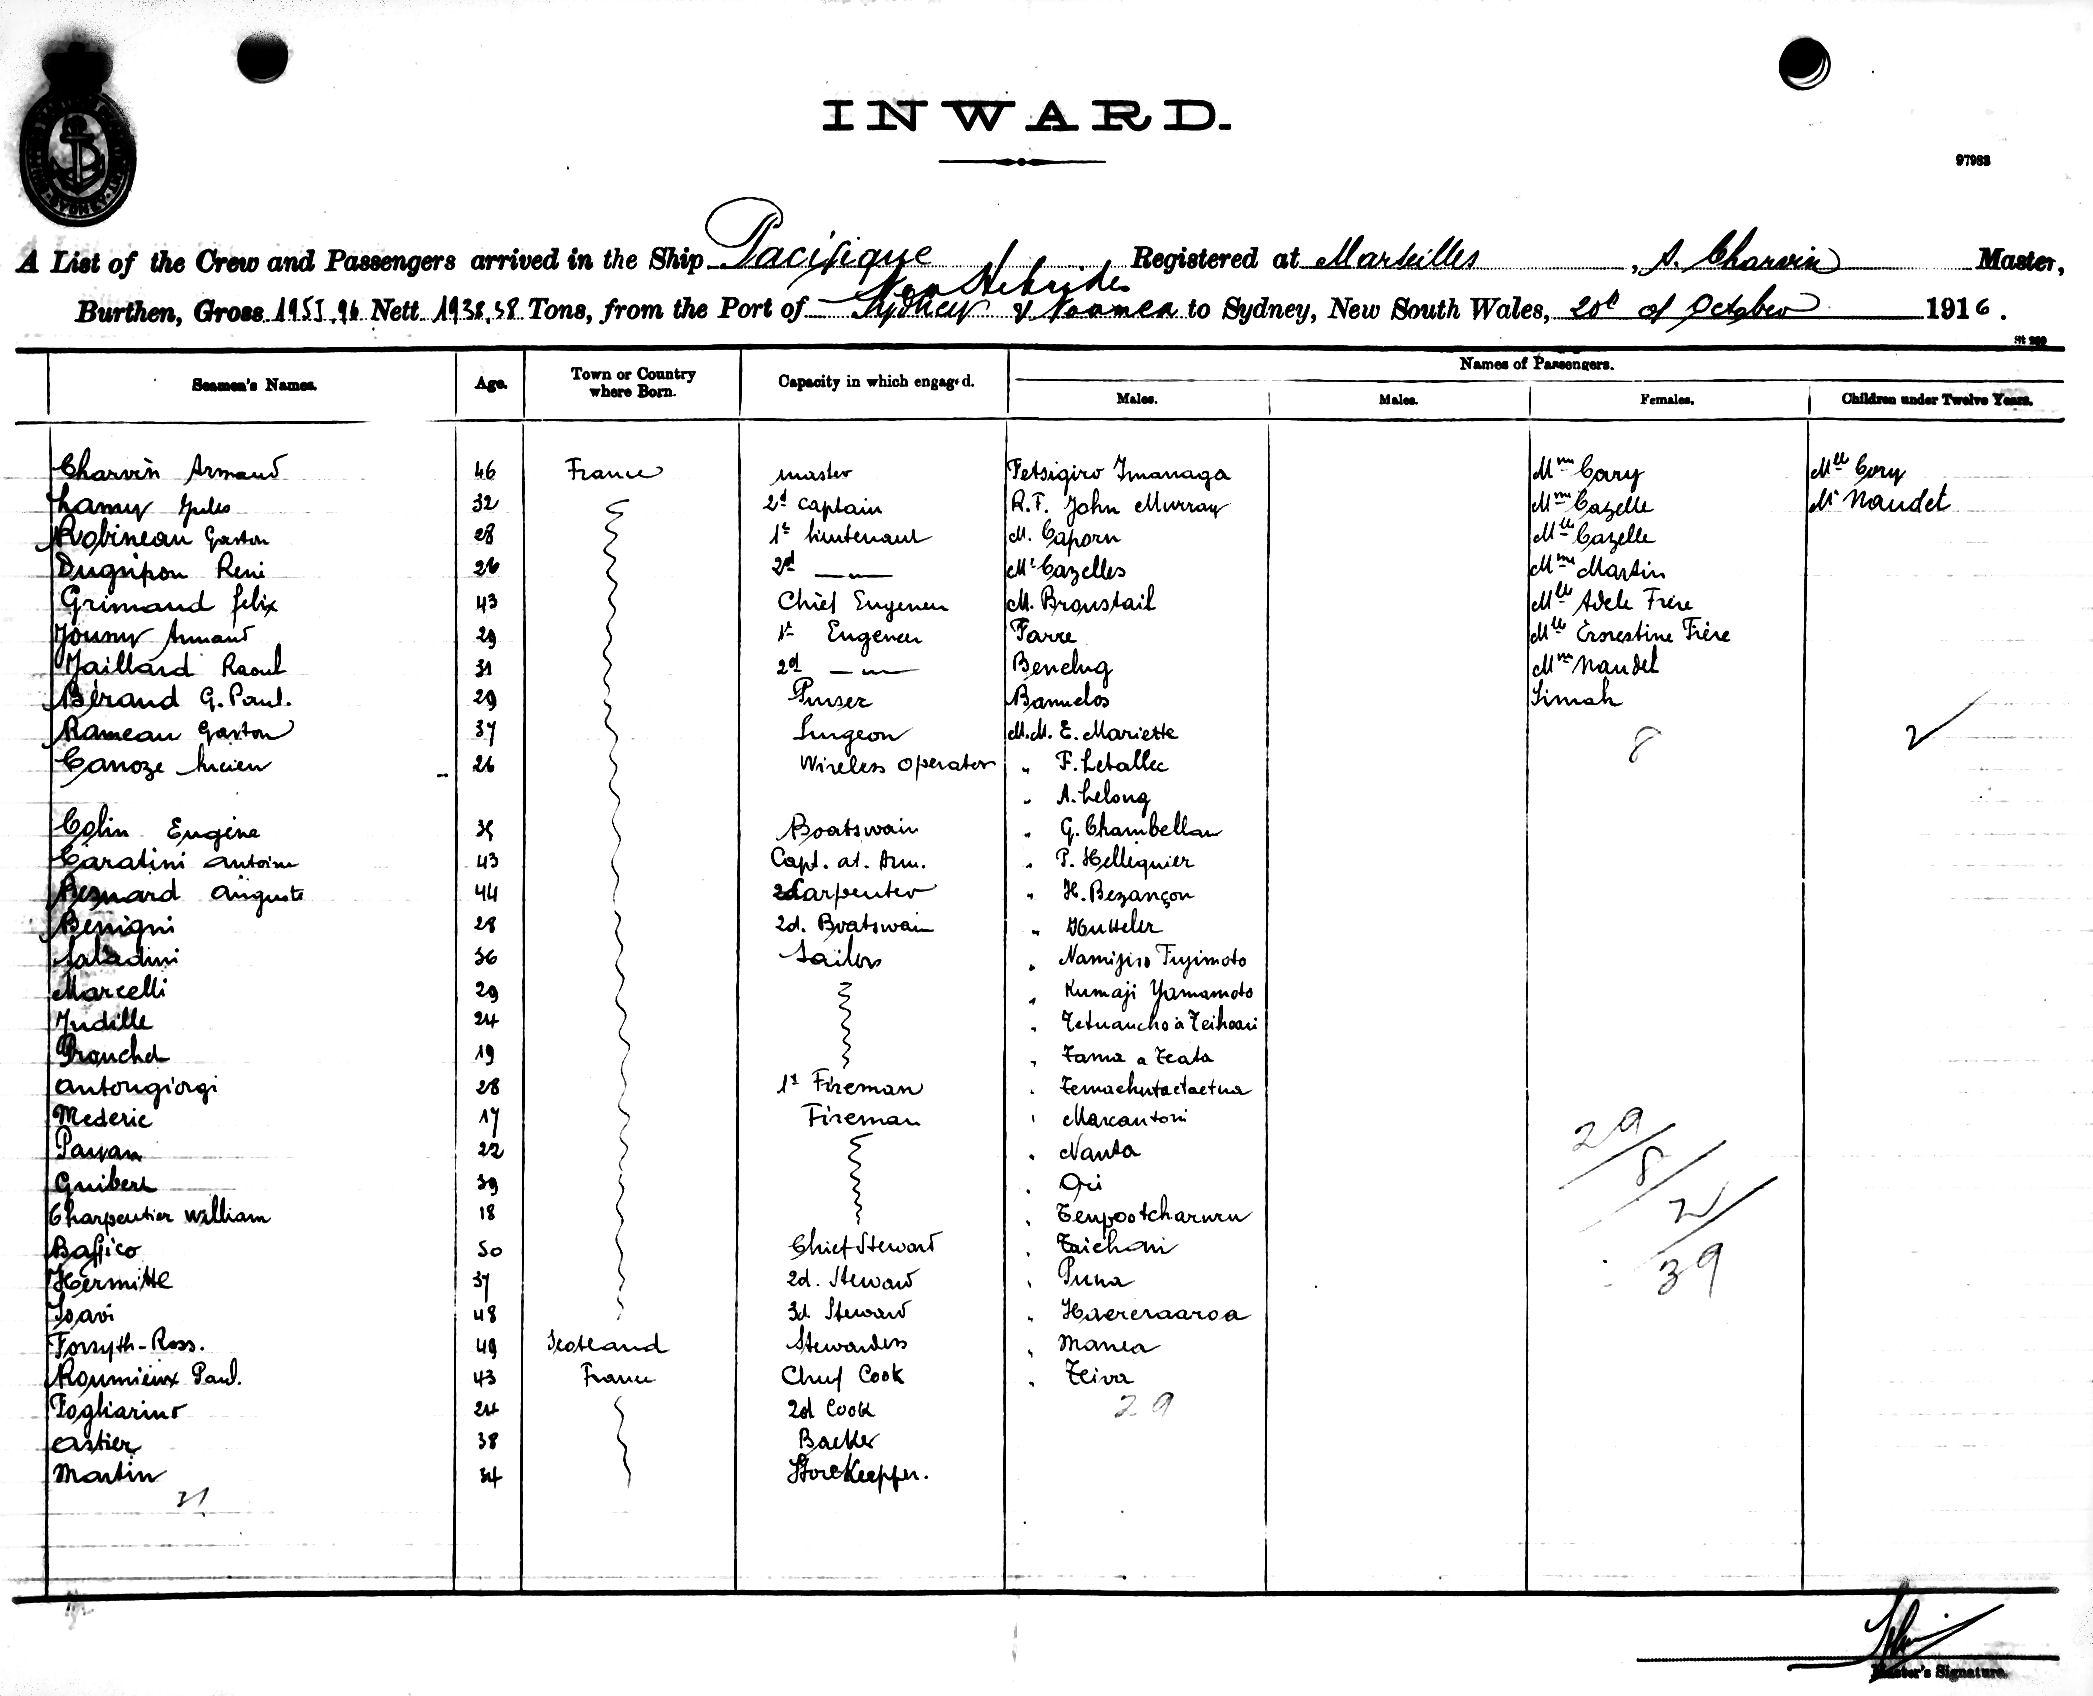 INWARD.
97983
A List of the Crew and Passengers arrived in the Ship Pacifique Registered at Marseilles, A. Charvin Master,
New Hebrides
Burthen, Gross 1951.96 Nett 1938.58 Tons, from the Port of Sydney & Noumea to Sydney, New South Wales, 20th of October 1916.
Seamen's Names. Age. Town or Country where Born. Capacity in which engaged. Names of Passengers.
Males. Males. Females. Children under Twelve Years.
Charvin Armand 46 France master Tetsigiro Imanaga Mme Cary Mlle Cory
Lamy Jules 32 2d captain R.F. John Murray Mme Cazelle Mr Naudet
Robineau Gaston 28 1st lieutenant M. Caporn Mlle Cazelle
Dugripon René 26 2d —"— Mr Cazelles Mme Martin
Grimaud felix 43 Chief Engeneer M. Broustail Mlle Adele Frère
Armand 29 1st Engeneer Farre Mlle Ernestine Frère
Jaillard Raoul 31 2d —"— Mme Naudet
Béraud G. Paul. 29 Purser Banuelos Simah
Rameau Gaston 37 Surgeon M.M. E. Mariette 8 2
Canoze Lucien 26 Wireless Operator " F. Letallec
" A. Lelong
Colin Eugène 35 Boatswain " G. Chambellan
Caratini antoine 43 Capt. at. Arm. " P. Helleguier
Besnard auguste 44 Carpenter " H. Bezançon
Benigni 28 2d. Boatswain " Hutteler
Saladini 36 Sailor " Namijiro Fujimoto
Marcelli 29 " Kumaji Yamamoto
Judille 24 " Tetuancho à Teihoari
19 " Tama a Teata
antongiorgi 28 1st Fireman "
Mederic 17 Fireman " Marcantoni
22 " Nanta
Guibert 39 " Ori
Charpentier William 18 "
Baffico 50 Chief Steward " Taichari
Hermitte 37 2d. Steward " Puna
48 3d Steward " Haereraaroa
Forsyth-Ross. 49 Scotland Stewardess " Manea
Roumieux Paul. 43 France Chief Cook " Teiva
Fogliarino 24 2d Cook 29
astier 38 Backer
Martin 34 StoreKeepper.
31
29
8
2
39
Master's Signature.